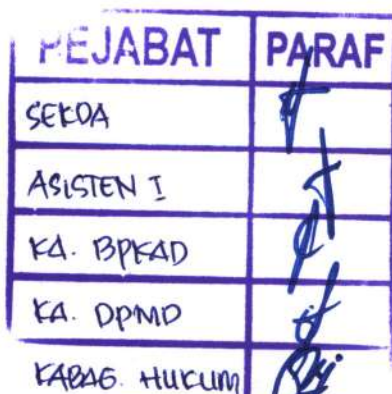 PEJABAT PARAF
SEKDA
ASISTEN I
KA. BPKAD
KA. DPMD
KABAG. HUKUM